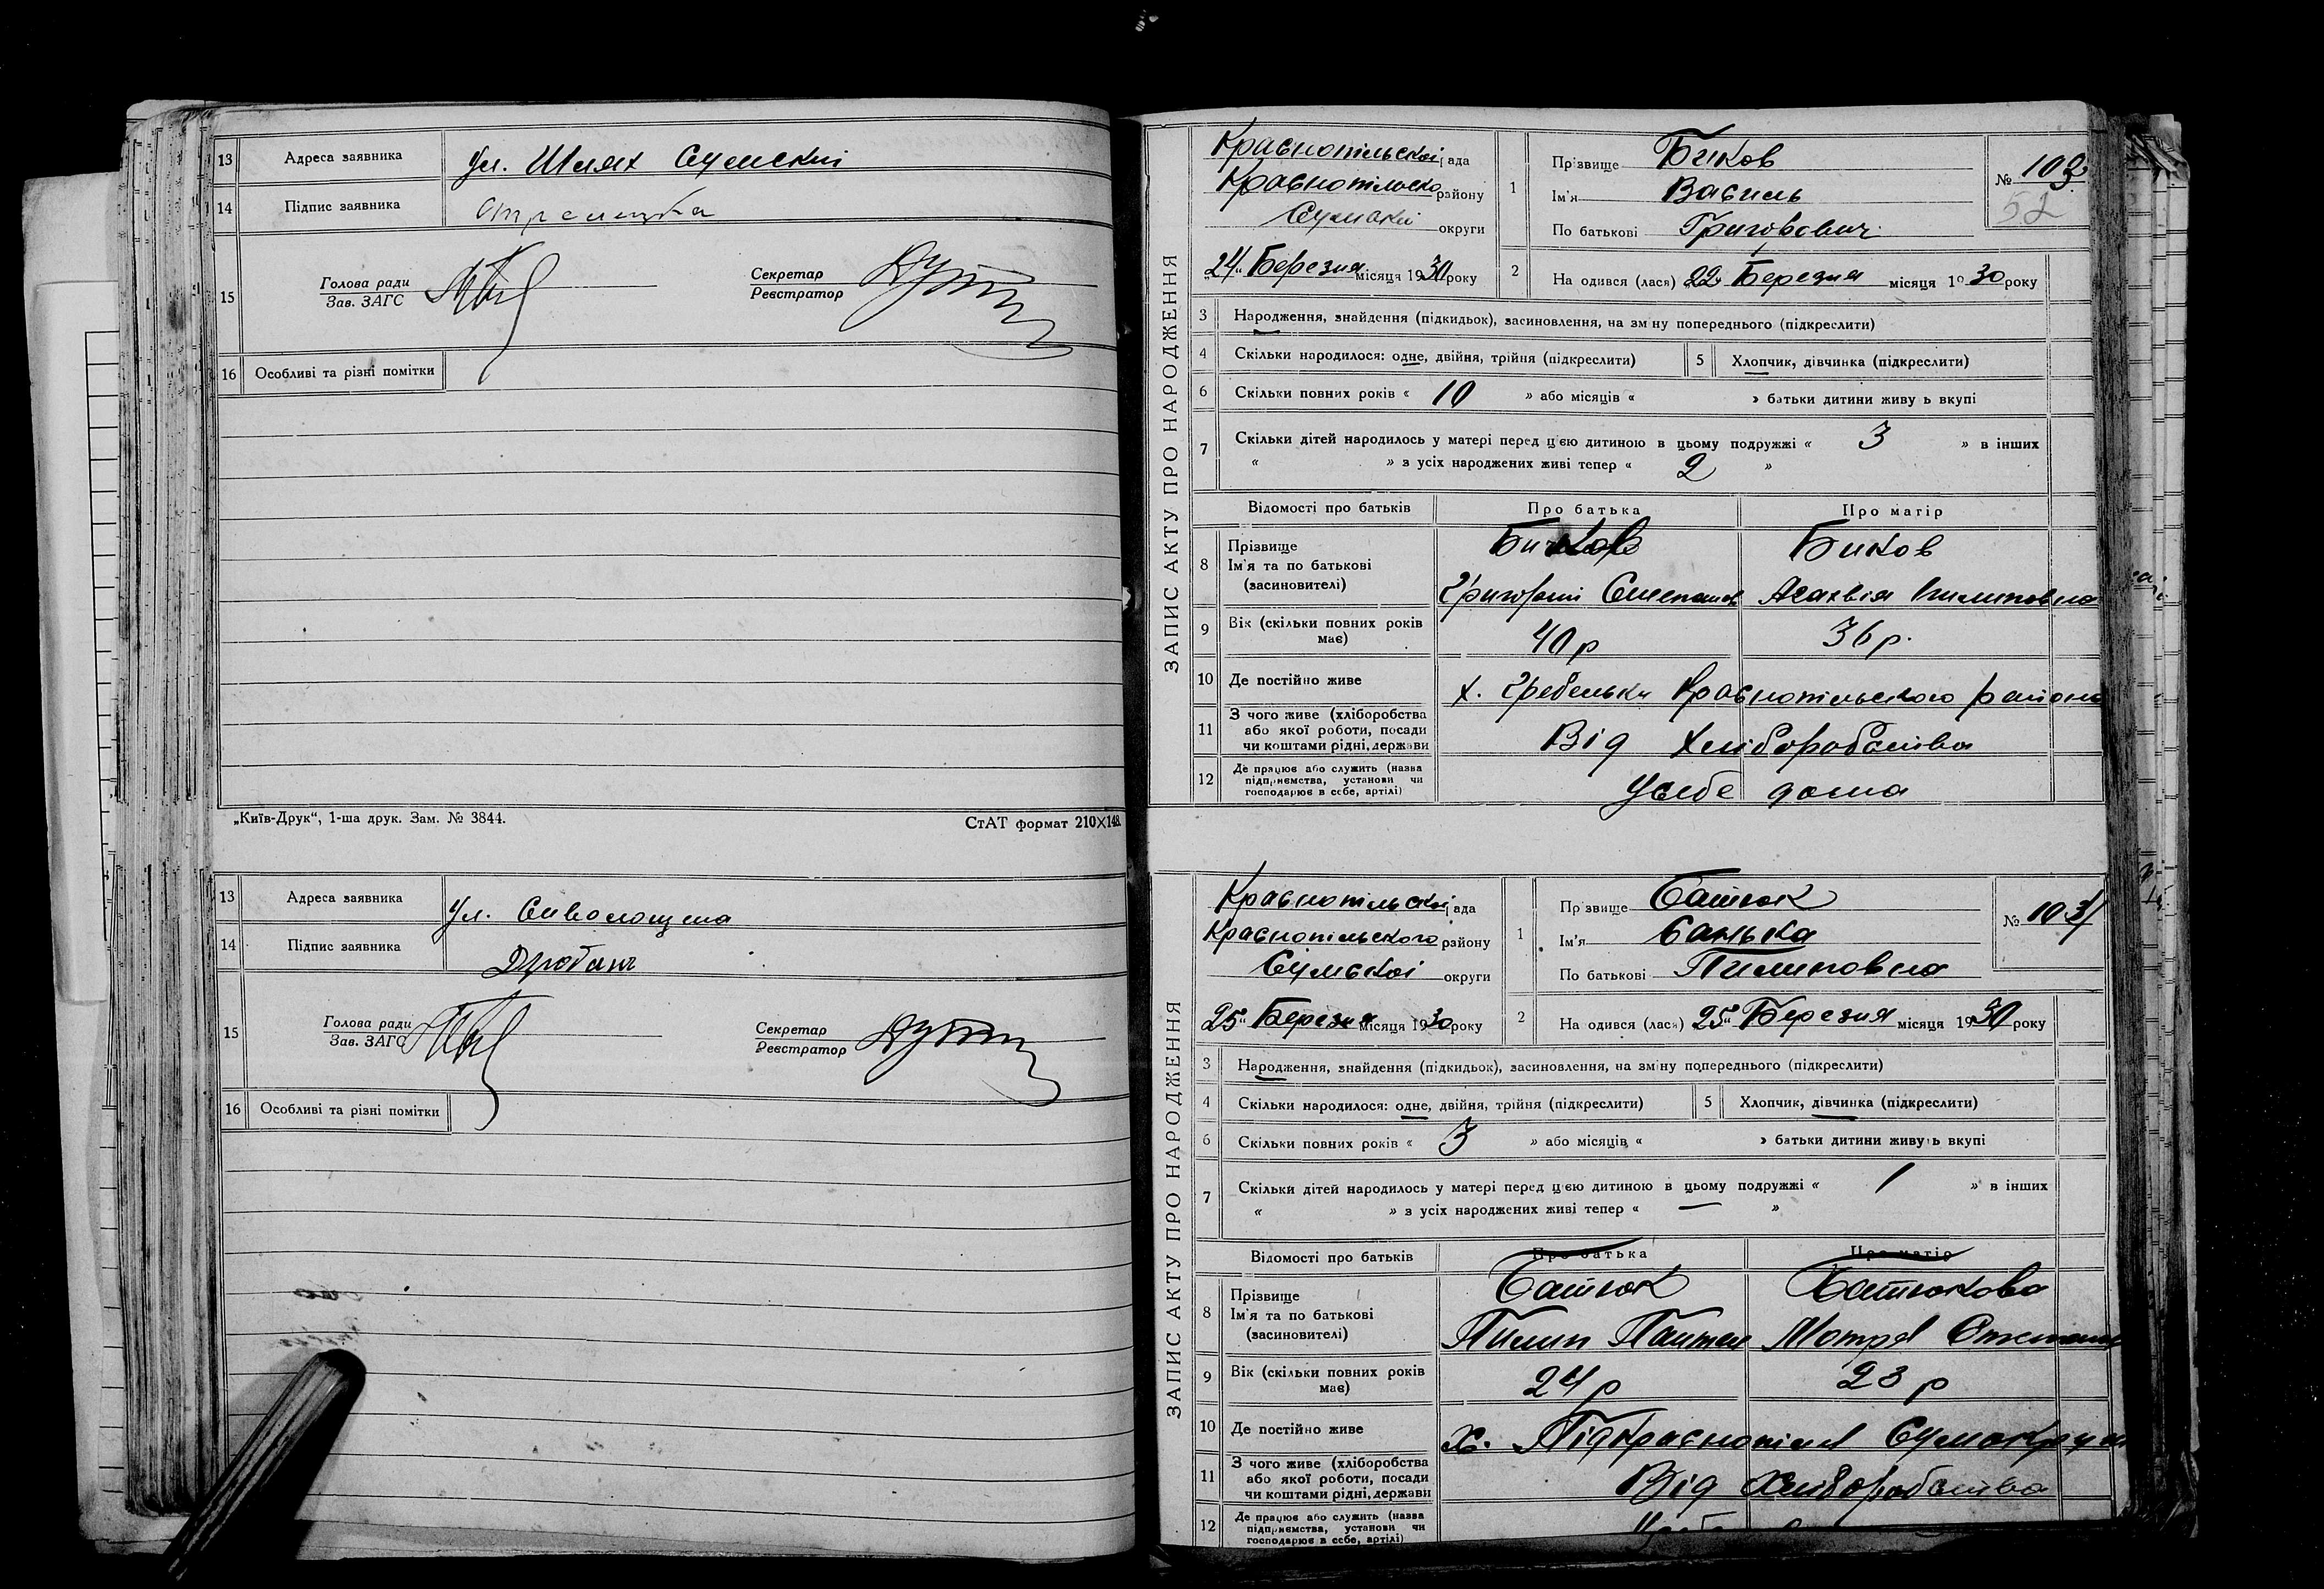 13 Адреса заявника Ул. Шлях Сумский
14 Підпис заявника
15 Голова ради
Зав. ЗАГС
Секретар
Реєстратор
16 Особливі та різні помітки
„Київ-Друк“, 1-ша друк. Зам. № 3844.
СтАТ формат 210×148.
13 Адреса заявника Ул.
14 Підпис заявника
15 Голова ради
Зав. ЗАГС
Секретар
Реєстратор
16 Особливі та різні помітки
ЗАПИС АКТУ ПРО НАРОДЖЕННЯ
Краснопільскої ради
Краснопільско району
Сумскої округи
„24“ Березня місяця 1930 року
1 Прізвище Биков
Ім'я Василь
По батькові Григорович
№ 103
52
2 Народився (лася) 22 Березня місяця 1930 року
3 Народження, знайдення (підкидьок), засиновлення, на зміну попереднього (підкреслити)
4 Скільки народилося: одне, двійня, трійня (підкреслити)
5 Хлопчик, дівчинка (підкреслити)
6 Скільки повних років « 10 » або місяців « » батьки дитини живуть вкупі
7 Скільки дітей народилось у матері перед цією дитиною в цьому подружжі « 3 » в інших
« » з усіх народжених живі тепер « 2 »
Відомості про батьків Про батька Про матір
8 Прізвище
Ім'я та по батькові
(засиновителі)
Биков Биков
Григорій Степанов Агахвія Пилиповна
9 Вік (скільки повних років має) 40 р 36 р.
10 Де постійно живе х. Гребеньки Краснопільского району
11 З чого живе (хліборобства
або якої роботи, посади
чи коштами рідні, держави
Від Хліборобства
12 Де працює або служить (назва
підприємства, установи чи
господарює в себе, артілі)
Усебе дома
ЗАПИС АКТУ ПРО НАРОДЖЕННЯ
Краснопільскої ради
Краснопільского району
Сумської округи
25“ Березня місяця 1930 року
1 Прізвище Батюк
Ім'я Санька
По батькові Пилиповна
№ 104
2 Народився (лася) 25“ Березня місяця 1930 року
3 Народження, знайдення (підкидьок), засиновлення, на зміну попереднього (підкреслити)
4 Скільки народилося: одне, двійня, трійня (підкреслити)
5 Хлопчик, дівчинка (підкреслити)
6 Скільки повних років « 3 » або місяців « » батьки дитини живуть вкупі
7 Скільки дітей народилось у матері перед цією дитиною в цьому подружжі « 1 » в інших
« » з усіх народжених живі тепер « — »
Відомості про батьків Про батька Про матір
8 Прізвище
Ім'я та по батькові
(засиновителі)
Батюк Батюкова
Пилип Пантел Мотря
9 Вік (скільки повних років має) 24 р 23 р
10 Де постійно живе х. Підкраснопілля Сумокруги
11 З чого живе (хліборобства
або якої роботи, посади
чи коштами рідні, держави
Від Хліборобства
12 Де працює або служить (назва
підприємства, установи чи
господарює в себе, артілі)